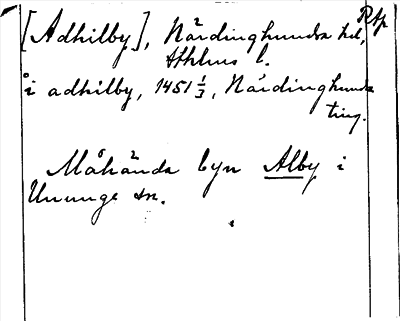 Rtp
[Adhilby], Närdinghundra hd,
Athlns l.
i adhilby, 1451 1/3, Närdinghundra
ting.
Måhända byn Alby i
Ununge sn.